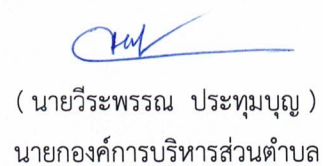 ( นายวีระพรรณ ประทุมบุญ )
นายกองค์การบริหารส่วนตำบล